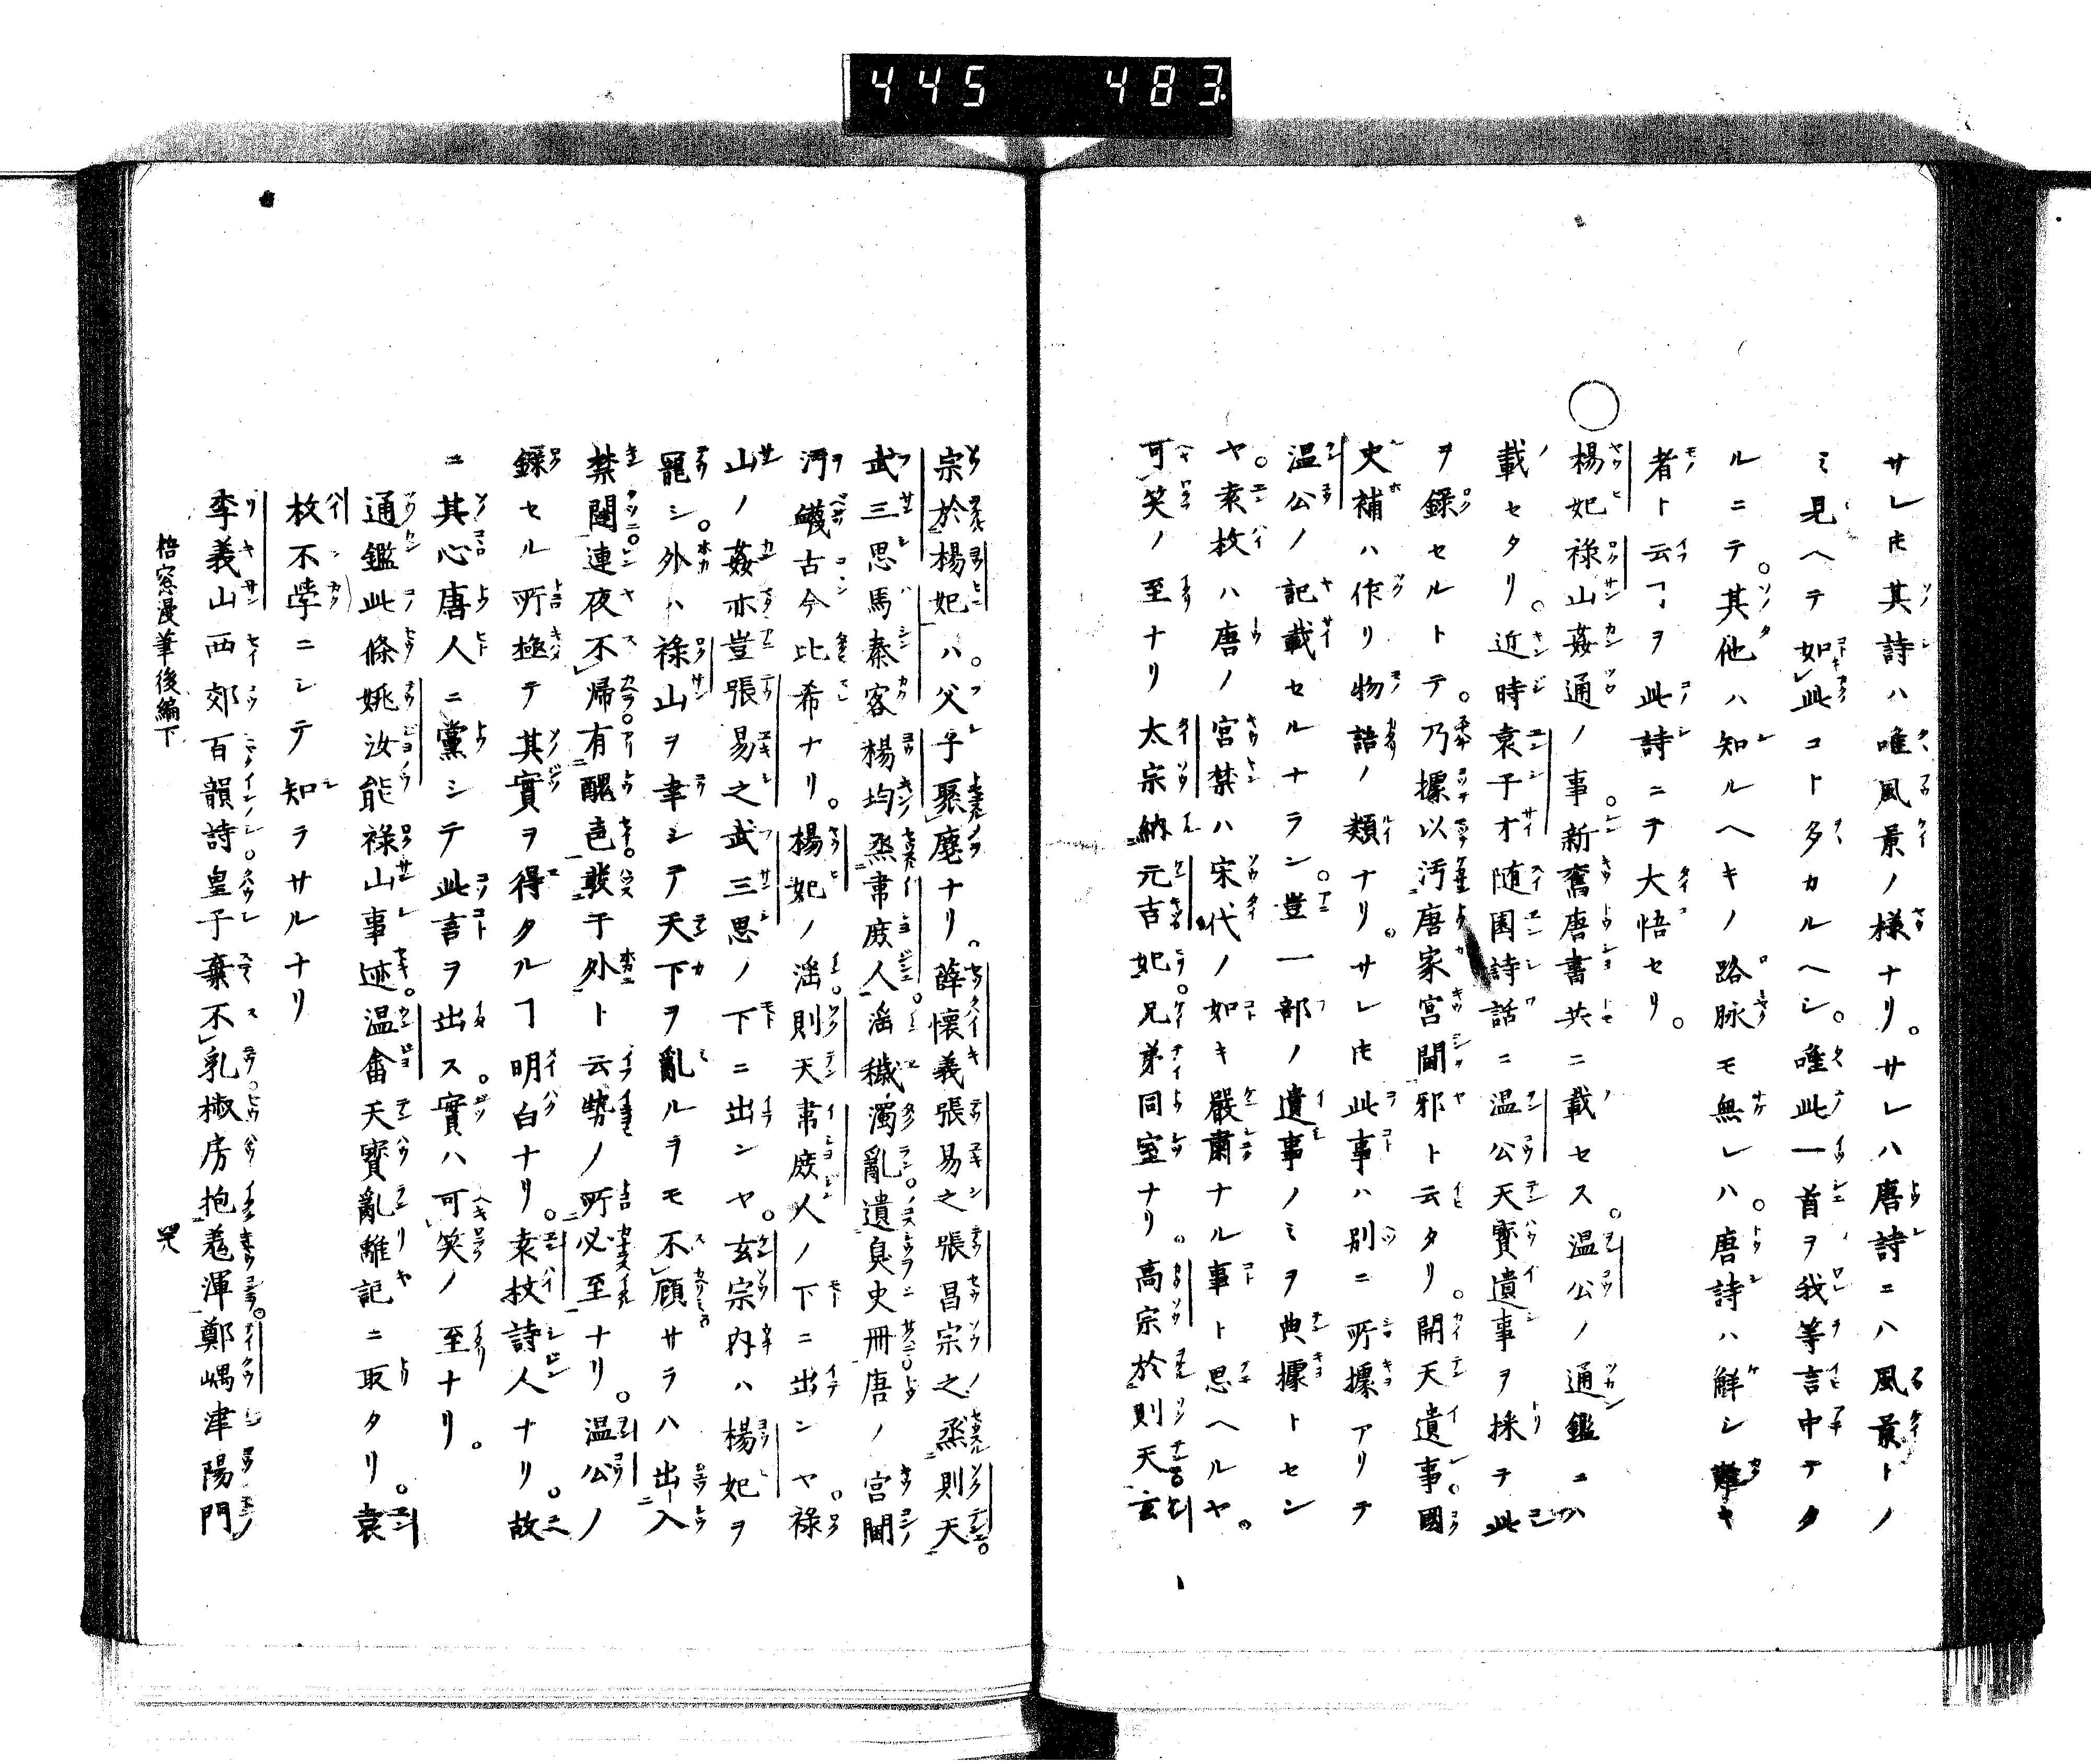 445 483
サレ𪜈其詩ハ唯風景ノ樣ナリ。サレハ唐詩ニハ風景トノ
ミ見ヘテ如此コト多カルヘシ。唯此一首ヲ我等言中テタ
ルニテ。其他ハ知ルヘキノ路脉モ無レハ。唐詩ハ解シ難キ
者ト云ヿヲ此詩ニテ大悟セリ。
○楊妃祿山姦通ノ事。新舊唐書共ニ載セス。温公ノ通鑑ニハ
載セタリ。近時袁子才随園詩話ニ温公天寶遺事ヲ採テ此
ヲ錄セルトテ。乃據以汚唐家宮閫邪ト云タリ。開天遺事。國
史補ハ作リ物語ノ類ナリ。サレ𪜈此事ハ別ニ所據アリテ
温公ノ記載セルナラン。豈一部ノ遺事ノミヲ典據トセン
ヤ。袁枚ハ唐ノ宮禁ハ宋代ノ如キ嚴肅ナル事ト思ヘルヤ。
可笑ノ至ナリ太宗納元吉妃。兄弟同室ナリ。高宗於則天玄
宗於楊妃ハ。父子聚麀ナリ。薛懷義張易之張昌宗之烝則天。
武三思馬秦客楊均烝韋庶人。滛穢濁亂。遺臭史冊唐ノ宮閫
汚衊古今比希ナリ。楊妃ノ滛。則天韋庶人ノ下ニ出ンヤ。祿
山ノ姦亦豈張易之武三思ノ下ニ出ンヤ。玄宗内ハ楊妃ヲ
寵シ。外ハ祿山ヲ幸シテ天下ヲ亂ルヲモ不顧サラハ出入
禁闥。連夜不歸。有醜聲。散于外ト云勢ノ所必至ナリ。温公ノ
錄セル所極テ其實ヲ得タルヿ明白ナリ。袁枚詩人ナリ。故
ニ其心唐人ニ黨シテ此言ヲ出ス。實ハ可笑ノ至ナリ。
通鑑此條姚汝能祿山事迹。温畬天寶亂離記ニ取タリ。袁
枚不學ニシテ知ラサルナリ
李義山西郊百韻詩。皇子棄不乳椒房抱羗渾。鄭嵎津陽門
梧窓漫筆後編下